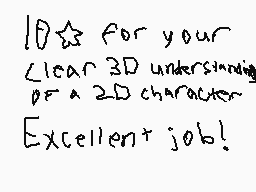 10☆ for your
clear 3D understanding
of a 2D character
Excellent job!